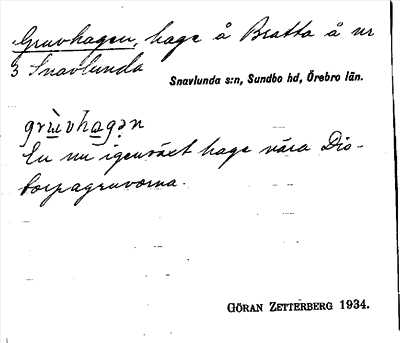 Gruvhagen, hage å Bratta å nr
3 Snavlunda
Snavlunda s:n, Sundbo hd, Örebro län.
grùvhagən
En nu igenväxt hage nära Dis-
torpagruvorna.
GÖRAN ZETTERBERG 1934.